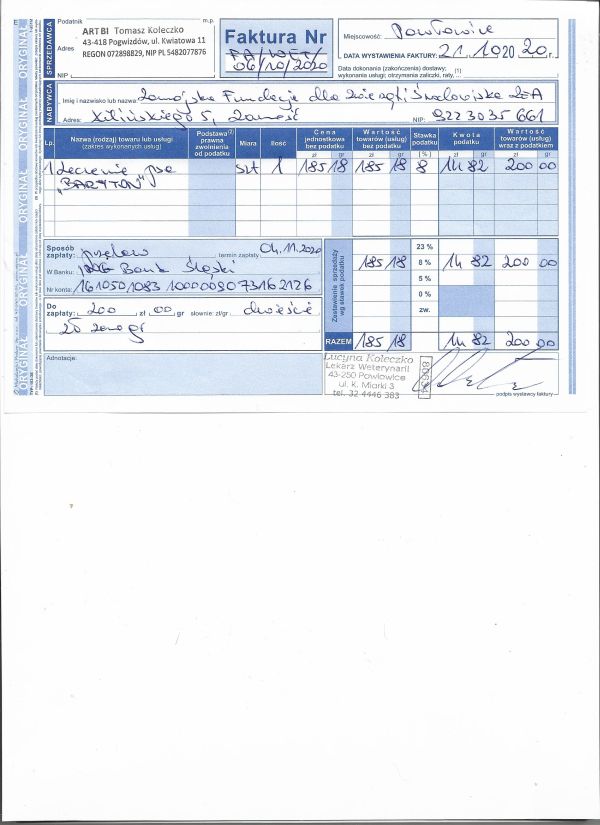 ORYGINAŁ ORYGINAŁ ORYGINAŁ ORYGINAŁ ORYGINAŁ
SPRZEDAWCA
Podatnik
m.p.
ART BI Tomasz Koleczko
43-418 Pogwizdów, ul. Kwiatowa 11
REGON 072898829, NIP PL 5482077876
Adres
NIP
Faktura Nr
FA/WET/
06/10/2020
Miejscowość: Pawłowice
DATA WYSTAWIENIA FAKTURY: 21.10 2020 r.
Data dokonania (zakończenia) dostawy;
wykonania usługi; otrzymania zaliczki, raty,
NABYWCA
Imię i nazwisko lub nazwa: Zamojska Fundacja dla Zwierząt i Środowiska ZEA
Adres: Kilińskiego 5, Zamość NIP: 9223035661
Lp. Nazwa (rodzaj) towaru lub usługi (zakres wykonanych usług) Podstawa prawna zwolnienia od podatku Miara Ilość Cena jednostkowa bez podatku Wartość towarów (usług) bez podatku Stawka podatku Kwota podatku Wartość towarów (usług) wraz z podatkiem
zł gr zł gr [%] zł gr zł gr
1 Leczenie psa szt 1 185 18 185 18 8 14 82 200 00
"BARYTON"
Sposób zapłaty: przelew termin zapłaty 04.11.2020
W Banku: ING Bank Śląski
Nr konta: 16105010831000009073162126
Do zapłaty: 200 zł 00 gr słownie: zł/gr dwieście
zł zero gr
Zestawienie sprzedaży wg stawek podatku
23 %
185 18 8 % 14 82 200 00
5 %
0 %
zw.
RAZEM 185 18 14 82 200 00
Adnotacje:
Lucyna Koleczko
Lekarz Weterynarii
43-250 Pawłowice
ul. K. Miarki 3
tel. 32 4446 383
podpis wystawcy faktury